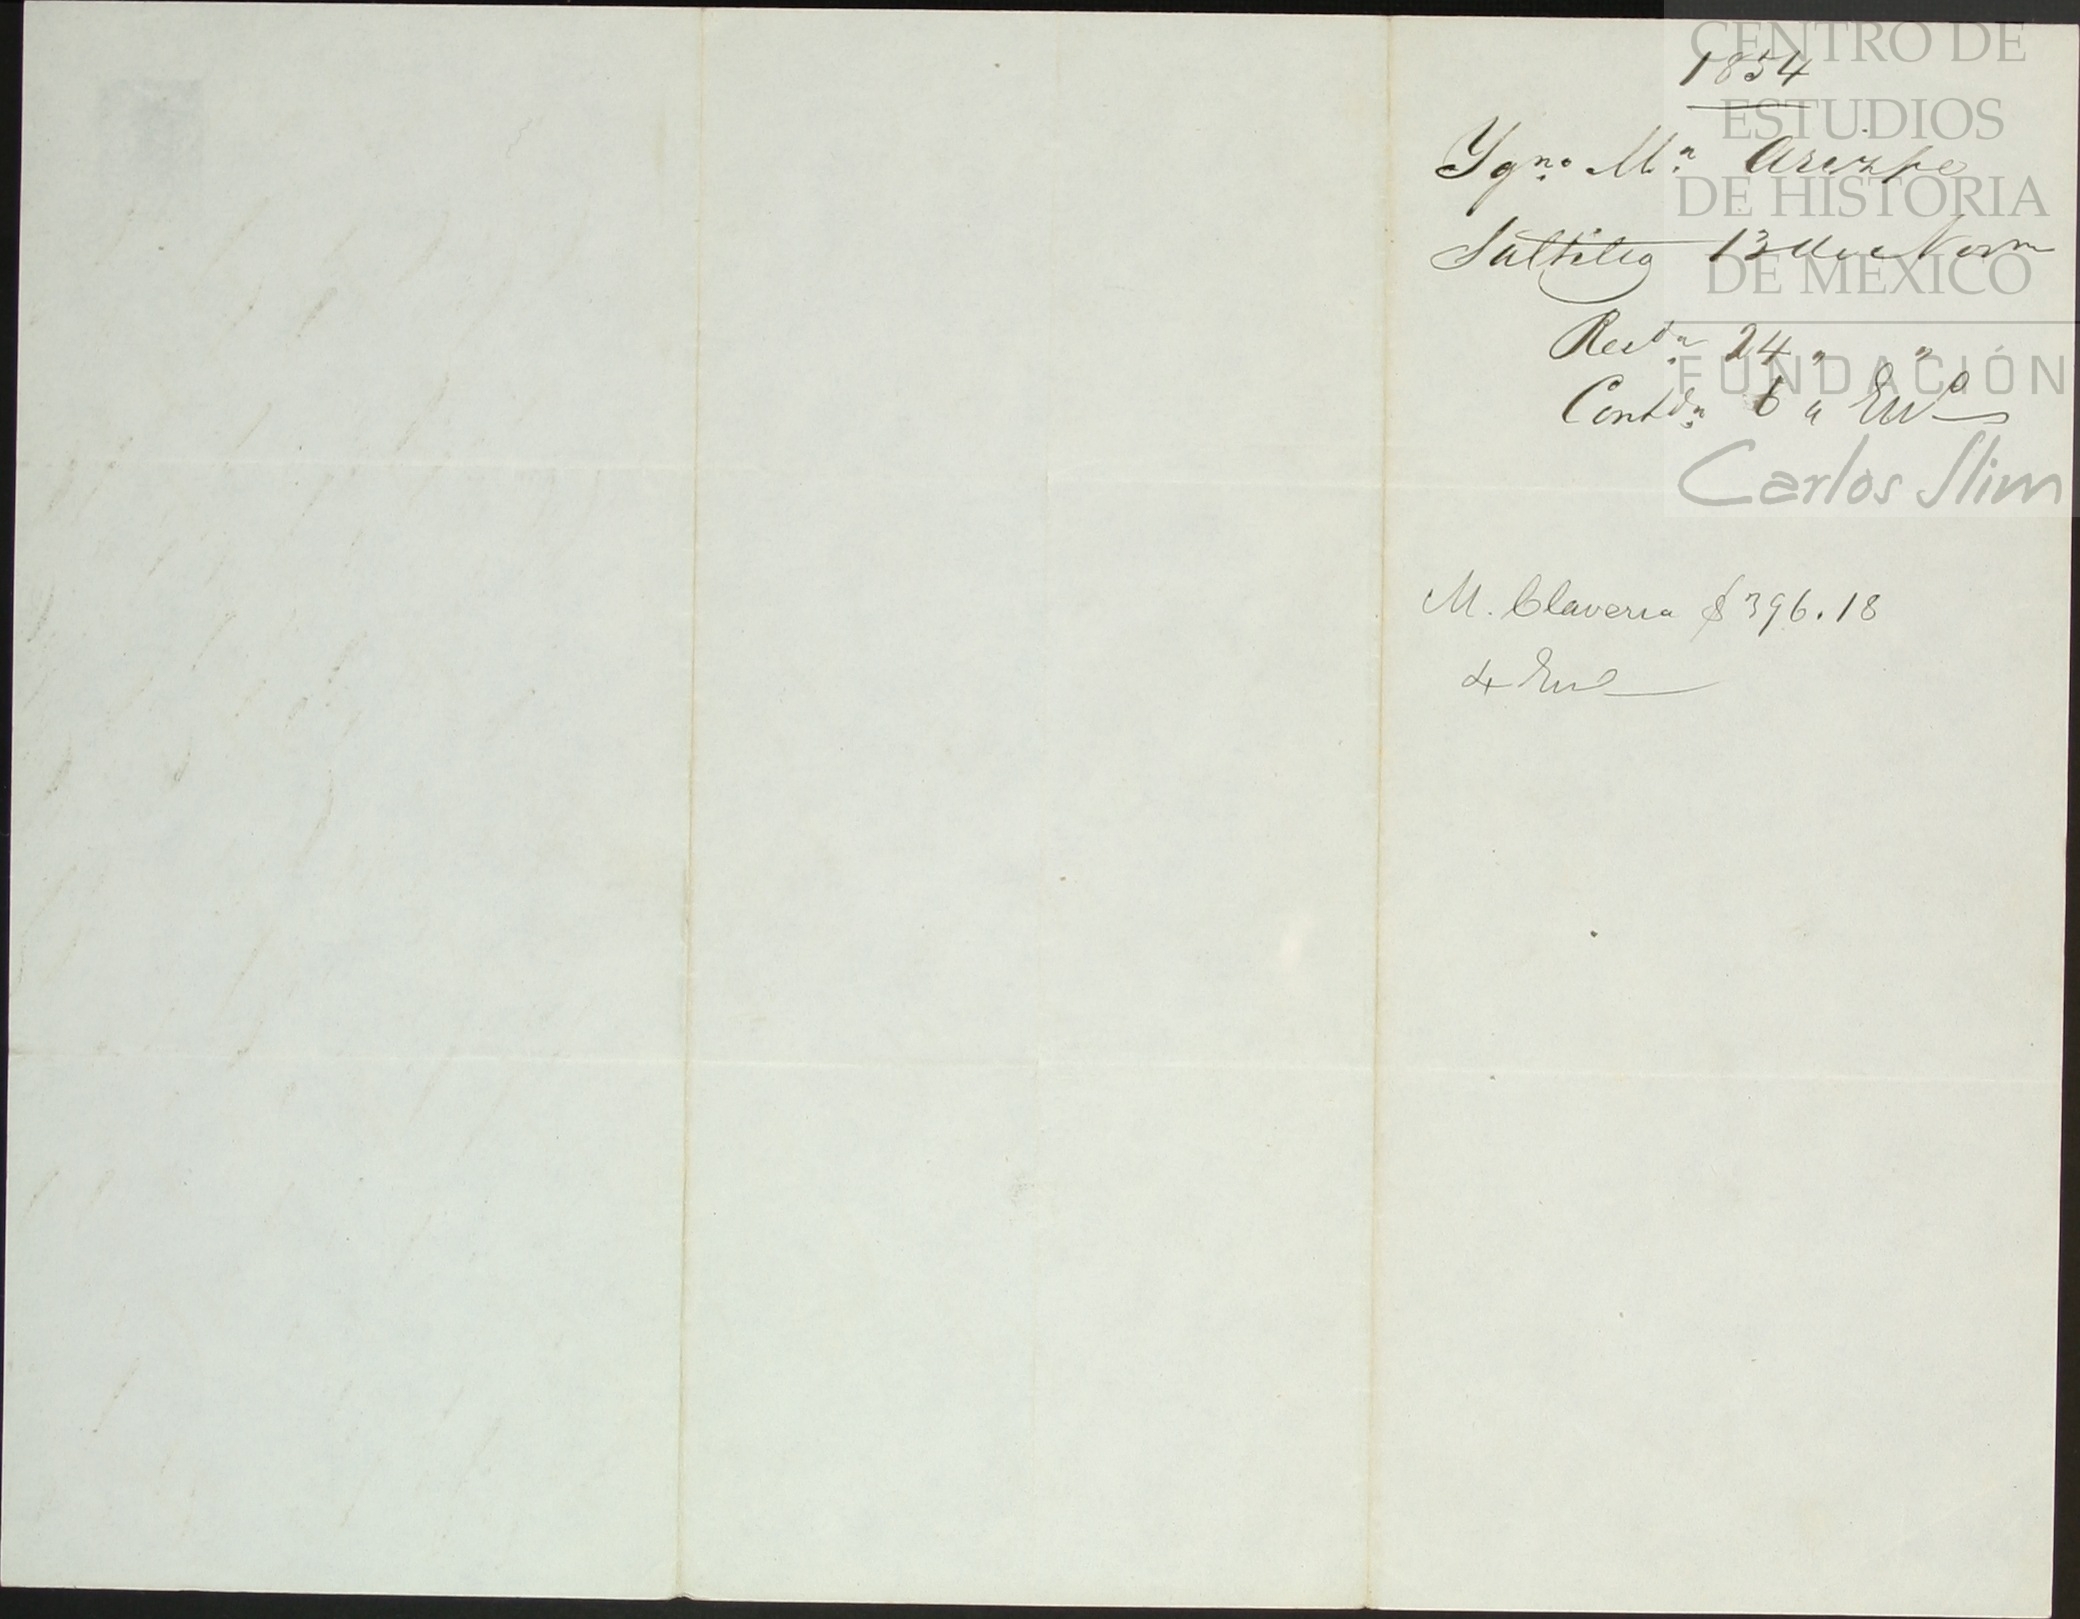 1854
Ygn.o M.a Arizpe
Saltillo 13 de Novre
Recda 24 " "
Contda 6 " En.o
M. Claveria $396.18
4 En.o
CENTRO DE
ESTUDIOS
DE HISTORIA
DE MEXICO
FUNDACIÓN
Carlos Slim